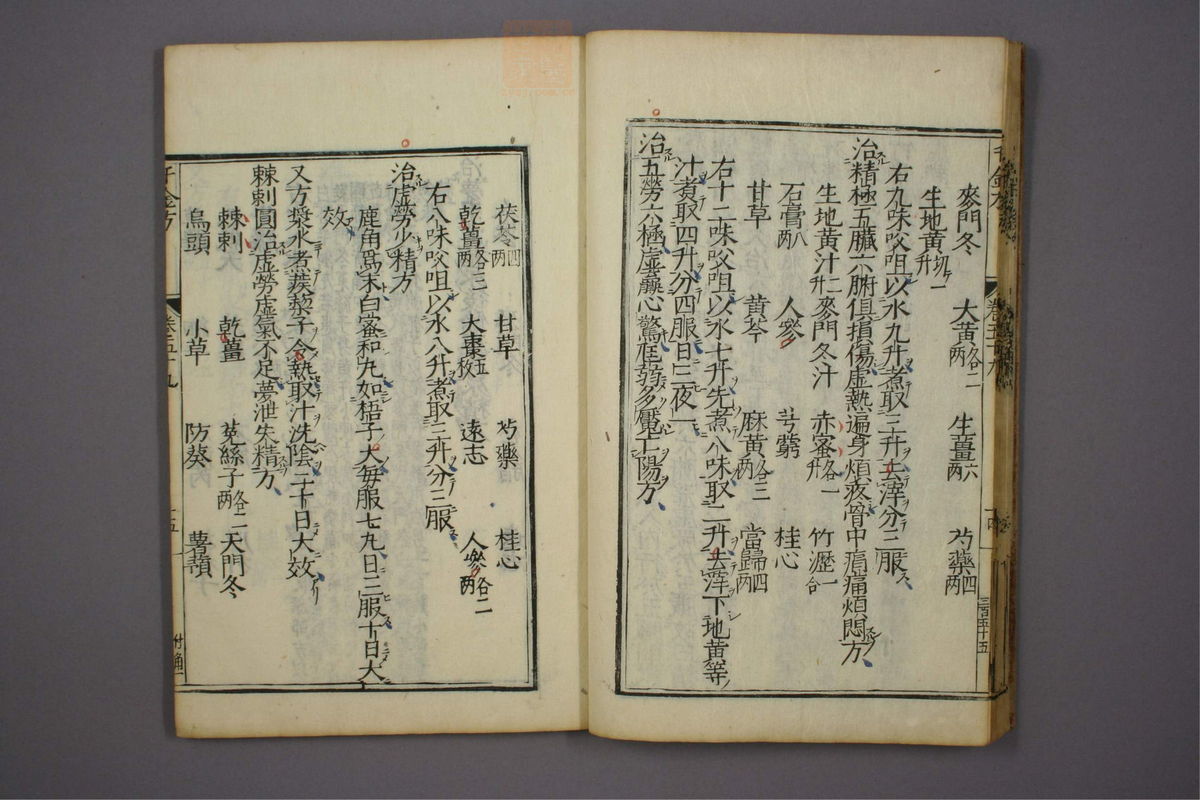 麥門冬 大黃各二兩 生薑六兩 芍藥四兩
生地黃切一升
右九味㕮咀以水九升煮取三升去滓分三服
治精極五臟六腑俱損傷虛熱遍身煩疼骨中痟痛煩悶方
生地黃汁二 麥門冬汁 赤蜜各一升 竹瀝一合
石膏八兩 人參 芎藭 桂心
甘草 黃芩 麻黃各三兩 當歸四兩
右十二味㕮咀以水七升先煮八味取二升去滓下地黃等
汁煮取四升分四服日三夜一
治五勞六極虛羸心驚尫弱多魘亡陽方
茯苓四兩 甘草 芍藥 桂心
乾薑各三兩 大棗五枚 遠志 人參各二兩
右八味㕮咀以水八升煮取三升分三服
治虛勞少精方
鹿角爲末白蜜和丸如梧子大每服七丸日三服十日大
效
又方漿水煮蒺藜子令熟取汁洗陰二十日大效
棘刺圓治虛勞虛氣不足夢泄失精方
棘刺 乾薑 菟絲子各二兩 天門冬
烏頭 小草 防葵 薯蕷
千金方 卷五十九 十五
三百五十五